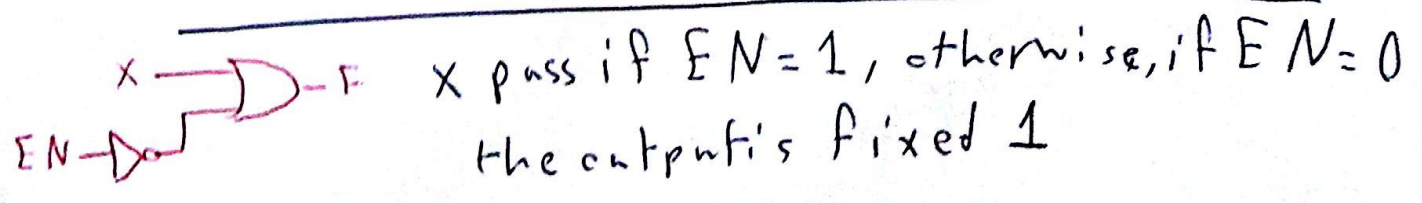 X
F
EN
X pass if EN=1, otherwise, if EN=0
the output is fixed 1